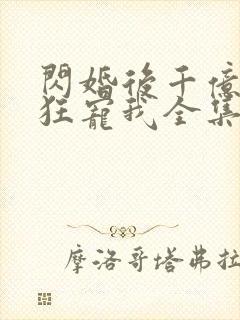 閃婚後千億
狂寵我全集
摩洛哥塔弗拉